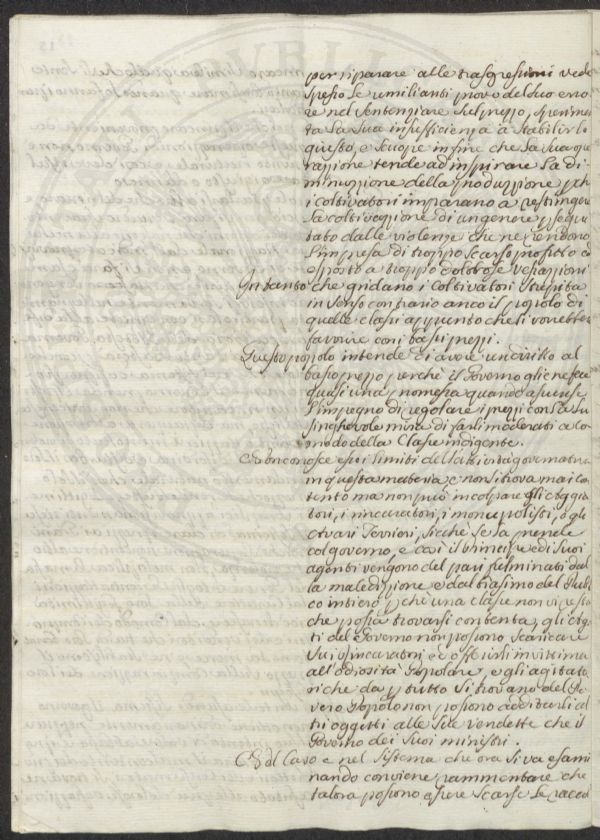 per riparare alle trasgressioni vede
spesso se umiliante prova del suo erro
re nel sentenziare sul prezzo, sperimen
ta la sua insufficienza a stabilirlo
questo, e scuopre infine che la sua ope
razione tende ad inspirare la di-
minuzione della produzione, pchè
i coltivatori imparano a restringere
la coltivazione di un genere pseque
tato dalle violenze che ne rendono
l'impresa di troppo scarso profitto ed
esposto a troppo dolorose vessazioni
Intanto che gridano i Coltivatori strepita
in senso contrario anco il popolo di
quelle classi appunto che si vorrebber
favorire coni bassi prezzi.
Questo popolo intende di avere un diritto al
basso prezzo perchè il Governo gliene fece
quasi una promessa quando assunse
l'impegno di regolare i prezzi con la lu
singhevole mira di farli moderati a co
modo della Classe indigente.
Ei non conosce essi i limiti dell'attività governativa
in questa materia e non si trova mai con
tento ma non può incolpare gli Aggia
tori, i rincaratori, i monopolisti, o gl'
Usurari Terrieri, sicchè se la prende
col governo, e così il principe ed i suoi
agenti vengono del pari fulminati dal
la maledizione e dal biasimo del Publi
co intiero, pchè una classe non vi resta
che possa trovarsi contenta, gli Agen
ti del Governo non possono scaricare
su i rincaratori ed offerirli in vittima
all'odiosità Popolare, e gli agitato
ri che da p tutto si trovano del Po
vero Popolo non possono additarli al
tri oggetti alle sue vendette che il
Governo dei suoi ministri.
Ed al Caso e nel Sistema che ora si va esami
nando conviene rammentare che
talora possono essere scarse le raccol